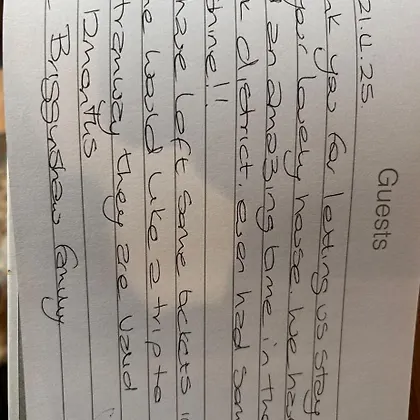 Guests
21.4.25
nk you for letting us stay
your lovely house. We ha
an amazing time in the
k district, even had som
hine!!
have left some tickets i
ne would like a trip to
tramway they are valid
12 months
Briggushaw family